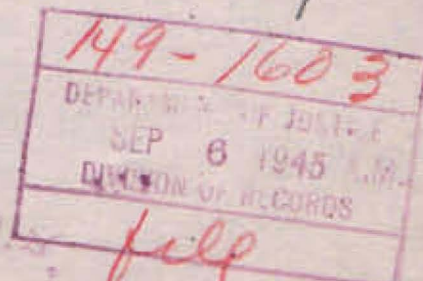 149-1603
DEPARTMENT OF JUSTICE
SEP 6 1945 A.M.
DIVISION OF RECORDS
file